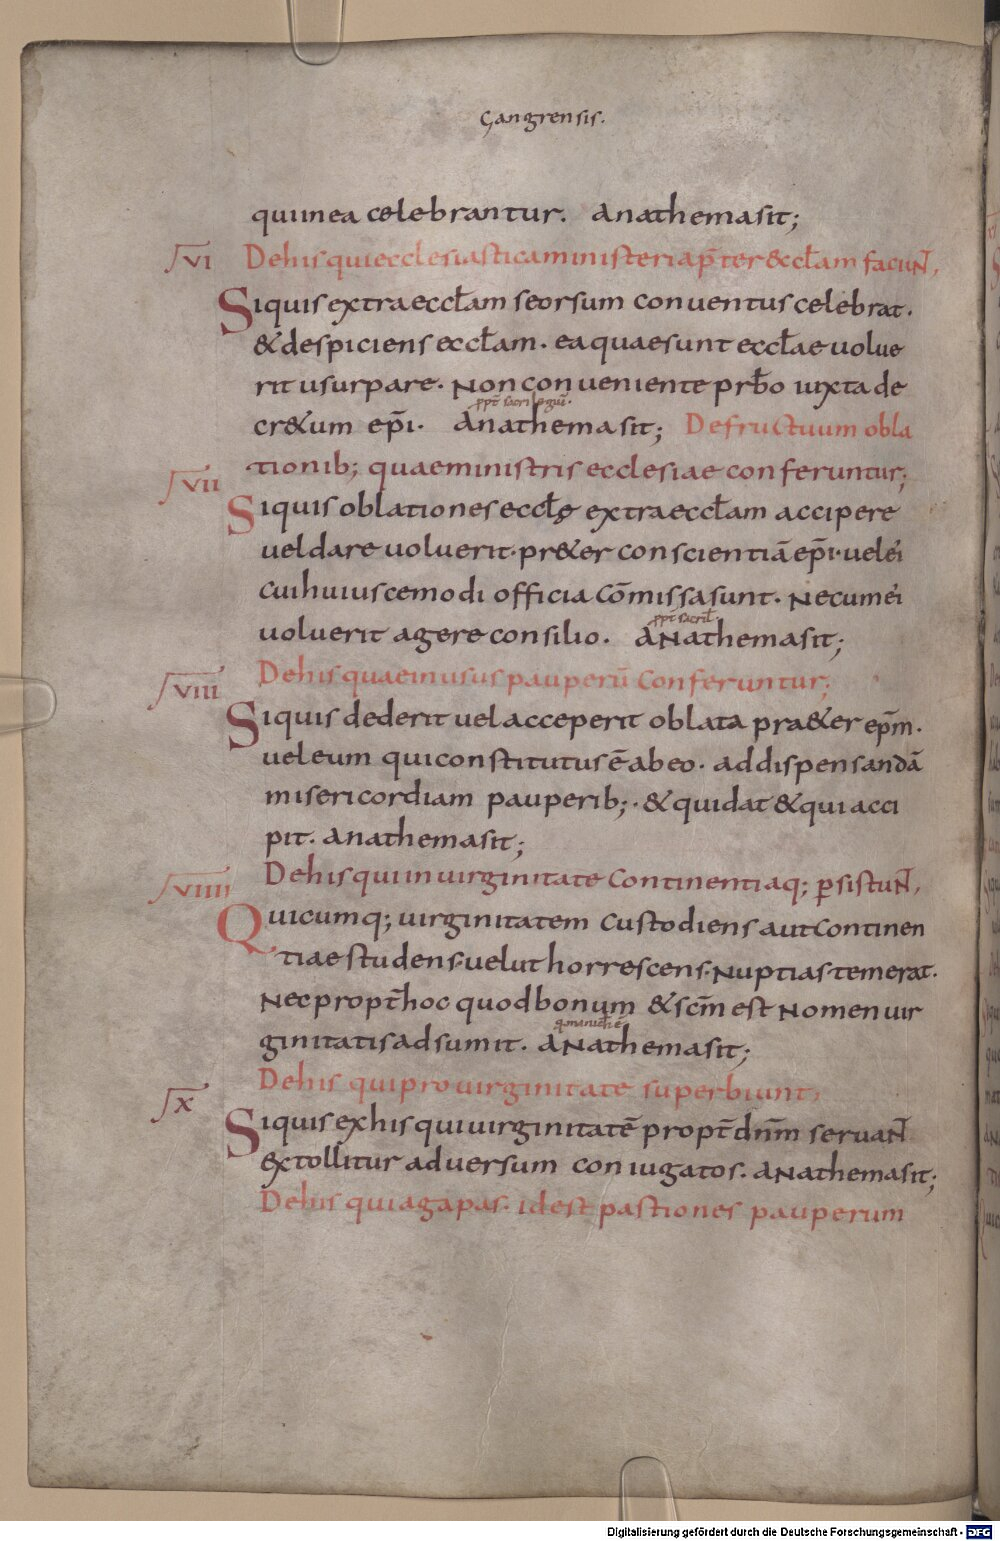 Gangrensis.
qui in ea celebrantur. Anathema sit;
VI De his qui ecclesiastica ministeria p̄ter & eccłam faciuN̄,
Si quis extra eccłam seorsum conuentus celebrat.
& despiciens eccłam. ea quae sunt eccłae uolue
rit usurpare. Non conueniente prƀo iuxta de
ppt̄ sacrilegiū.
cr&um ep̄i. Anathema sit; De fructuum obla
VII tionib; quae ministris ecclesiae conferuntur;
Si quis oblationes eccłę extra eccłam accipere
uel dare uoluerit. pr&er conscientiā ep̄i. uel ei
cui huiuscemodi officia cōmissa sunt. Nec um ei
ppt̄ sacril̄
uoluerit agere consilio. ANathema sit;
VIII De his quae in usus pauperū conferuntur;
Si quis dederit uel acceperit oblata pra&er ep̄m.
uel eum qui constitutus ē ab eo. ad dispensandā
misericordiam pauperib;. & qui dat & qui acci
pit. anathema sit;
VIIII De his qui in uirginitate continentiaq; p̱sistuN̄,
Quicumq; uirginitatem custodiens aut continen
tiae studens. uelut horrescens. Nuptias temerat.
Nec propt̄ hoc quod bonum & sc̄m est Nomen uir
q. manichē
ginitatis adsumit. ANathema sit;
De his qui pro uirginitate superbiunt,
X Si quis ex his qui uirginitatē propt̄ dn̄m seruaN̄
extollitur aduersum coniugatos. ANathema sit;
De his qui agapas. id est pastiones pauperum
Digitalisierung gefördert durch die Deutsche Forschungsgemeinschaft - DFG